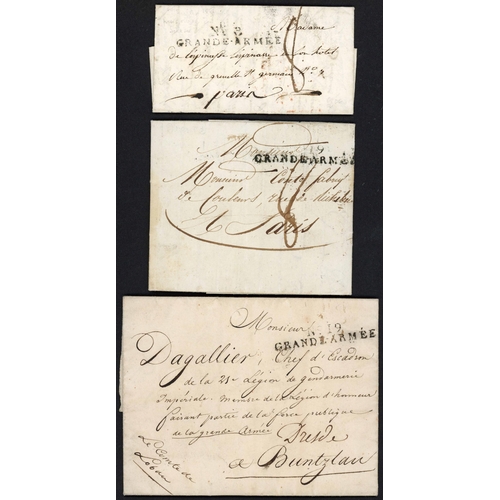 Nº 2
GRANDE-ARMÉE
a Madame
rue de grenelle St germain nº
paris
8
19
GRANDE-ARMÉE
Monsieur
de Couleurs, rue
A Paris
8
Monsieur
Nº 19
GRANDE-ARMÉE
Dagallier, Chef d'Escadron
de la 21e Légion de Gendarmerie
Impériale, Membre de la Légion d'honneur
faisant partie de la force publique
de la grande Armée
Dresde
a Buntzlau
Le Comte de
Lobau